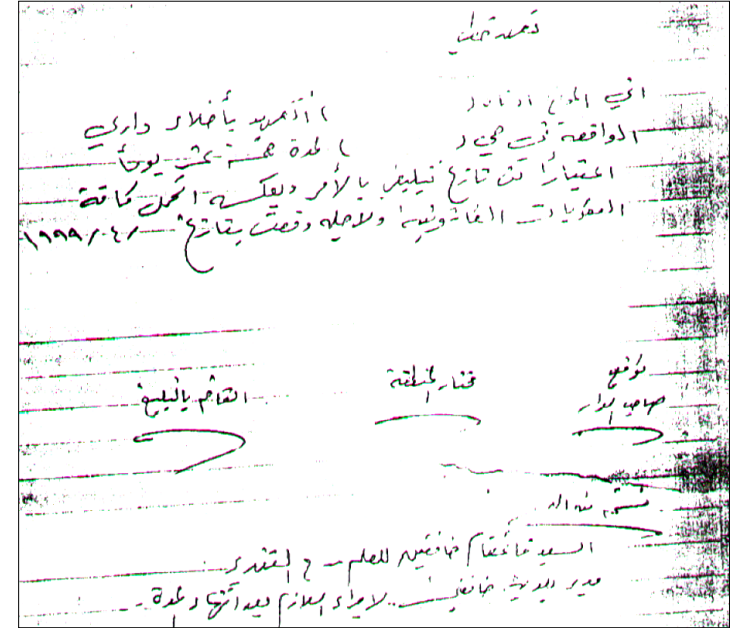 تعهد خطي
اني الموقع ادناه (
) اتعهد بأخلاء داري
الواقعة في حي (
) لمدة خمسة عشر يوماً
اعتباراً من تاريخ تبليغي بالأمر وبعكسه اتحمل كافة
العقوبات القانونية ولاجله وقعت بتاريخ / ٤ / ١٩٩٩
توقيع
صاحب الدار
مختار المنطقة
القائم بالتبليغ
نسخة منه الى
السيد قائمقام خانقين للعلم مع التقدير
مدير بلدية خانقين لاجراء اللازم بعد انتهاء المدة